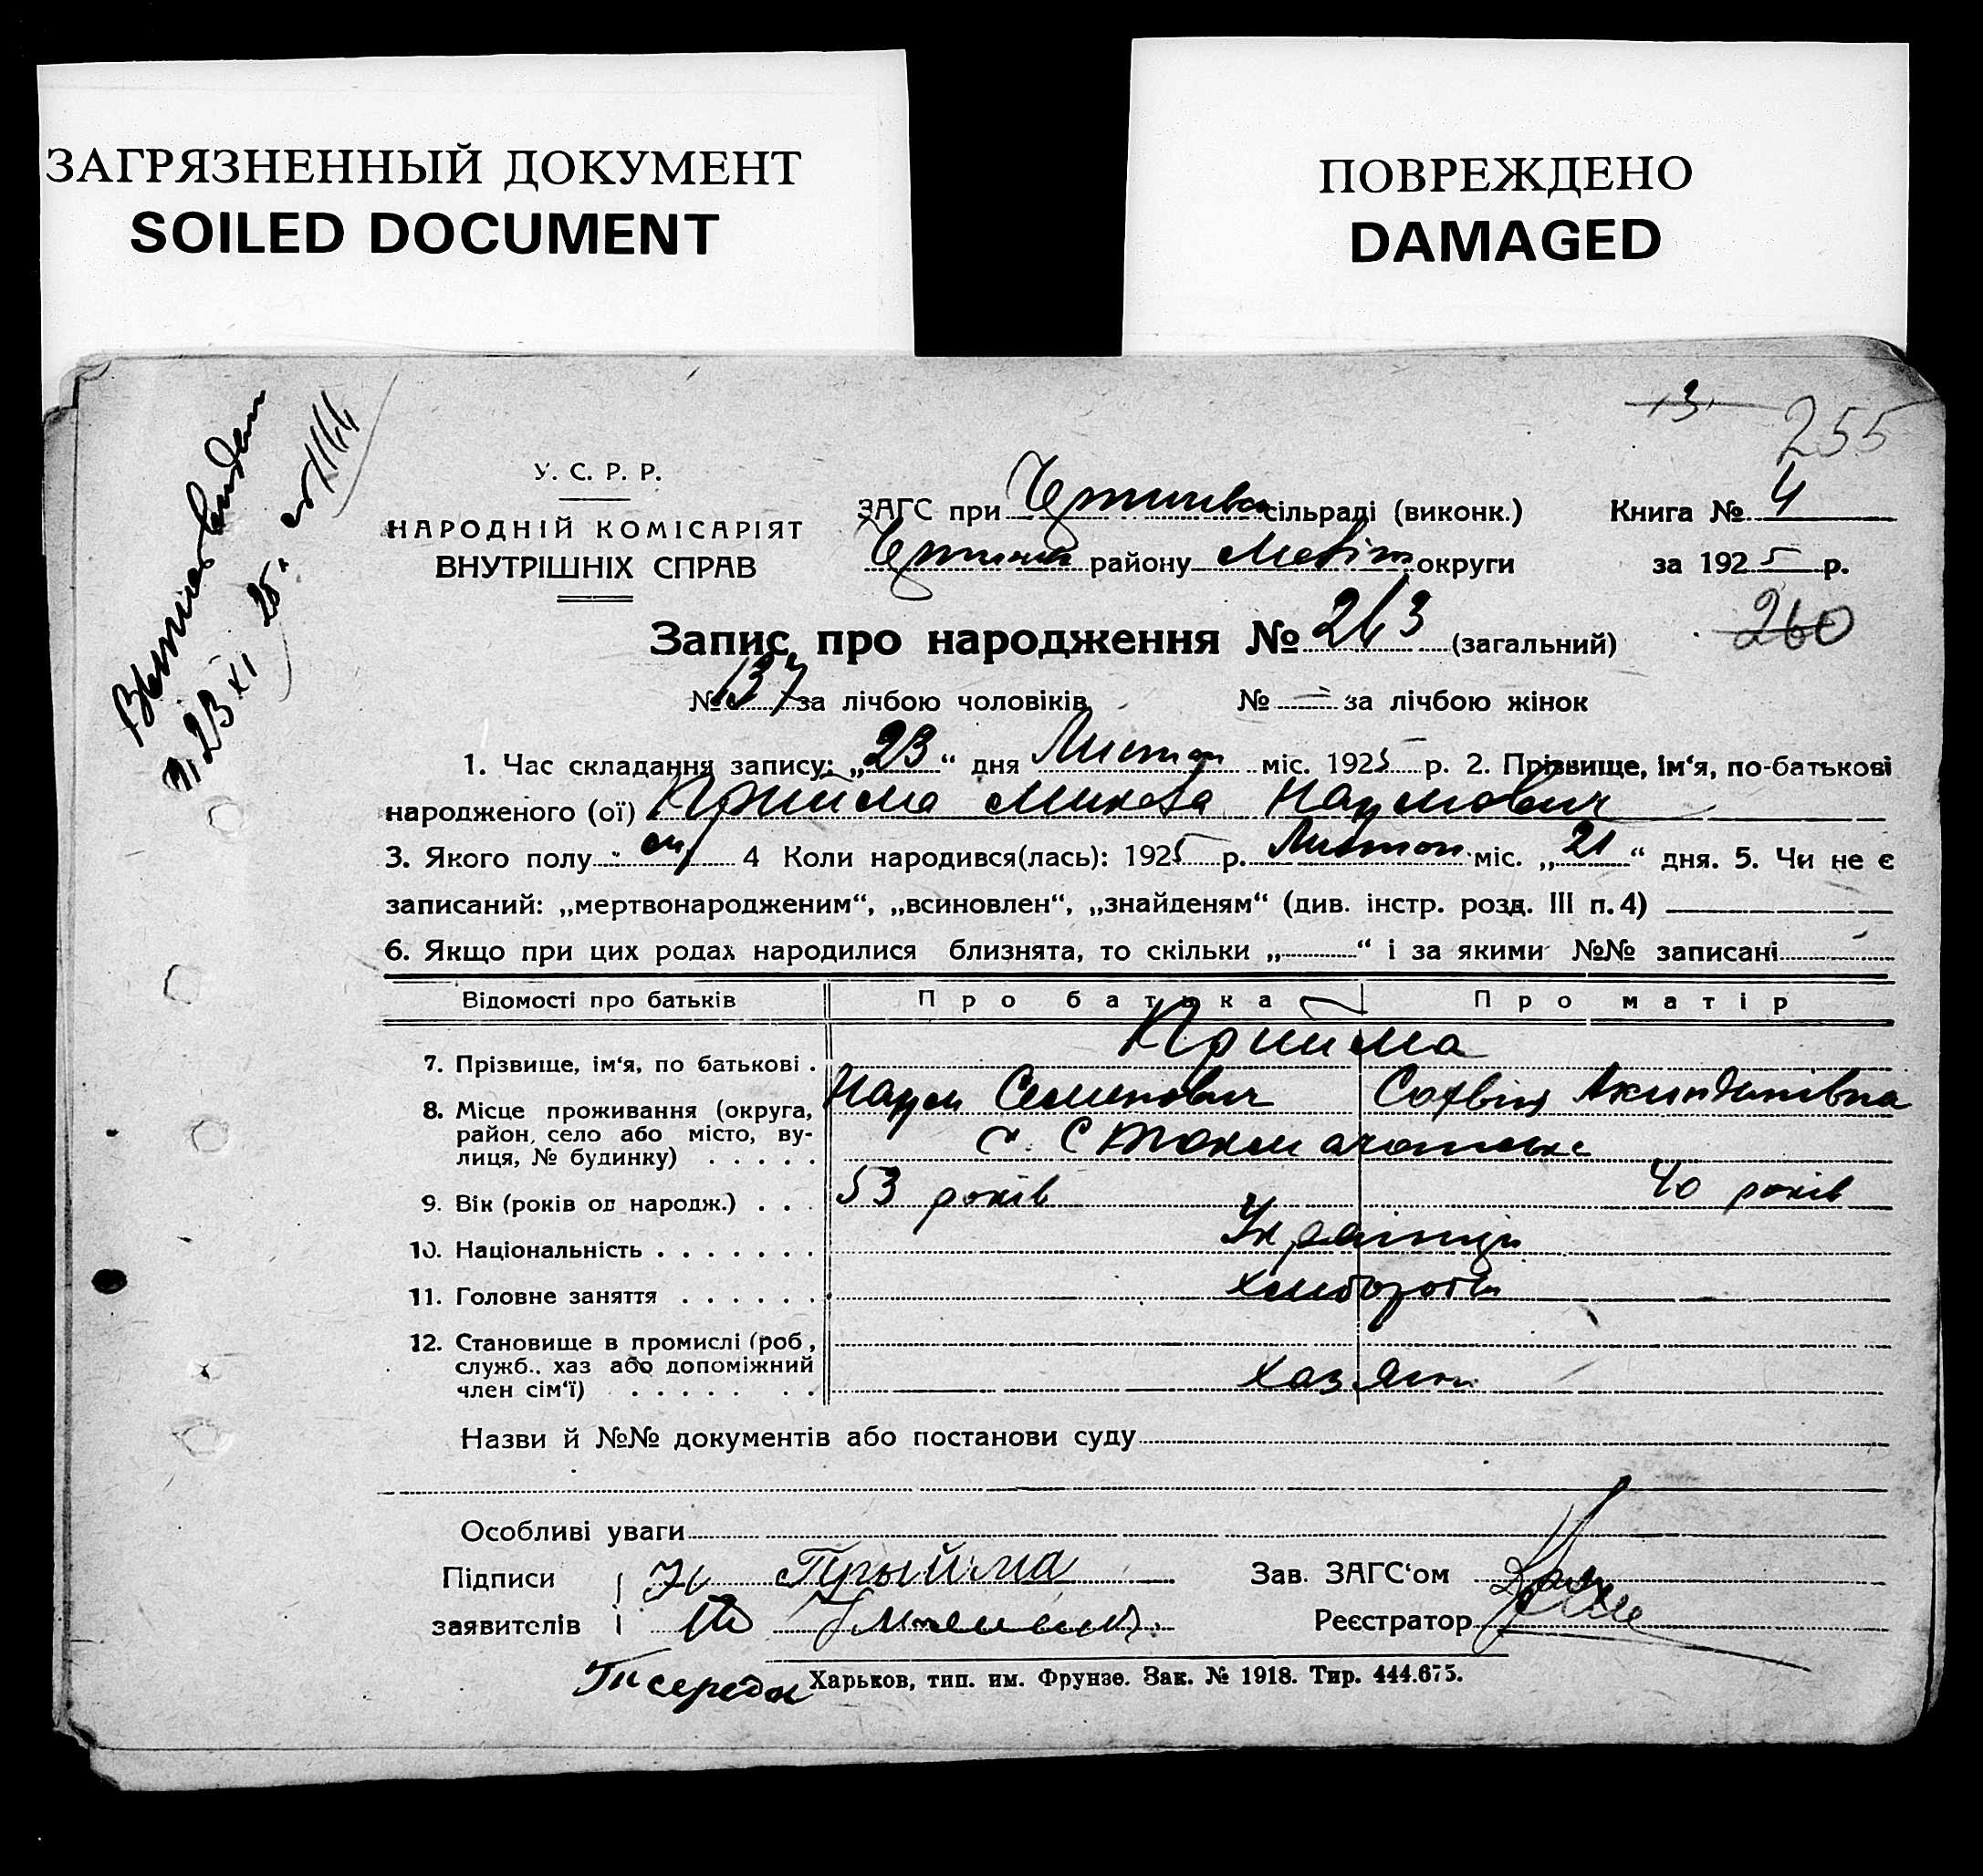 ЗАГРЯЗНЕННЫЙ ДОКУМЕНТ
SOILED DOCUMENT
ПОВРЕЖДЕНО
DAMAGED
13
255
У. С. Р. Р.
НАРОДНІЙ КОМІСАРІЯТ
ВНУТРІШНІХ СПРАВ
ЗАГС при сільраді (виконк.) Книга № 4
району округи за 1925 р.
Запис про народження № 263 (загальний) 260
№ 137 за лічбою чоловіків № за лічбою жінок
1. Час складання запису: „23“ дня Листоп міс. 1925 р. 2. Прізвище, ім‘я, по-батькові
народженого (ої)Прийма Микола Наумович
3. Якого полу 4 Коли народився(лась): 1925 р. Листоп міс. „21“ дня. 5. Чи не є
записаний: „мертвонародженим“, „всиновлен“, „знайденям“ (див. інстр. розд. III п. 4)
6. Якщо при цих родах народилися близнята, то скільки „ “ і за якими №№ записані
Відомості про батьків Про батька Про матір
7. Прізвище, ім‘я, по батькові . Приима
Наум Семенович
8. Місце проживання (округа,
район, село або місто, ву-
лиця, № будинку) . . . . .
9. Вік (років од народж.) . . . 53 років 40 років
10. Національність . . . . . . . Українці
11. Головне заняття . . . . . . хлибороби
12. Становище в промислі (роб,
служб., хаз або допоміжний
член сім‘ї) . . . . . . . хазяин
Назви й №№ документів або постанови суду
Особливі уваги
Підписи Прыйма Зав. ЗАГС‘ом
заявителів Реєстратор
Харьков, тип. им. Фрунзе. Зак. № 1918. Тир. 444.675.